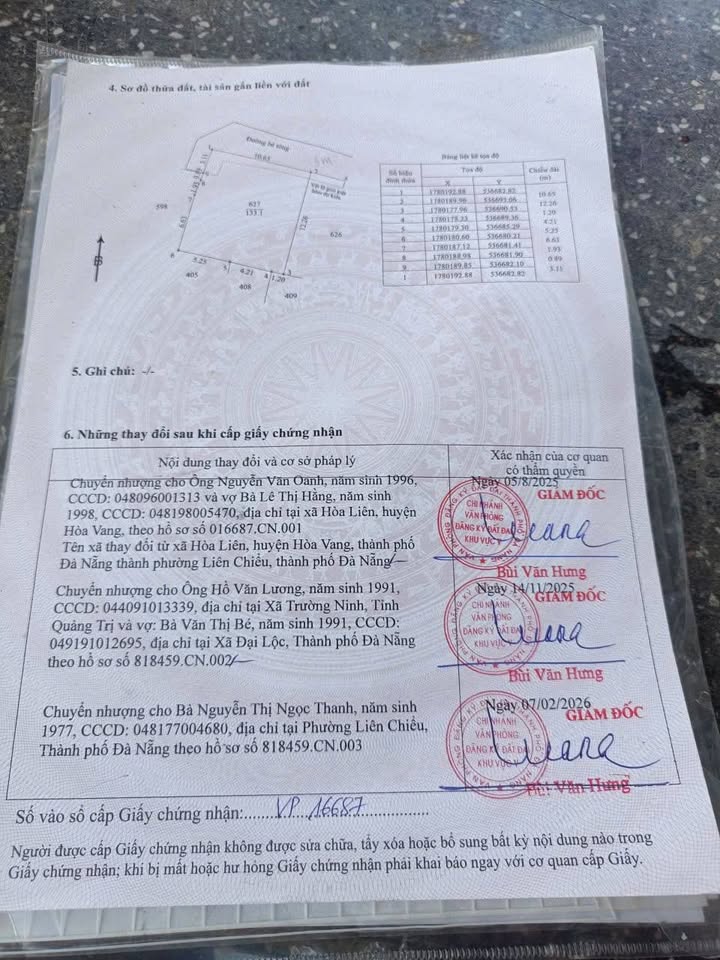 4. Sơ đồ thửa đất, tài sản gắn liền với đất
Đường bê tông
10.65
3.11
598
627
133.1
12.26
626
6.63
6
5.25
5
4.21
4
1.20
3
405
408
409
Bảng liệt kê tọa độ
Số hiệu đỉnh thửa
Tọa độ
Chiều dài (m)
X
Y
1 1780192.88 536682.82
10.65
2 1780189.96 536693.06
12.26
3 1780177.96 536690.53
1.20
4 1780178.23 536689.36
4.21
5 1780179.30 536685.29
5.25
6 1780180.60 536680.21
6.63
7 1780187.12 536681.41
1.93
8 1780188.98 536681.90
0.89
9 1780189.85 536682.10
3.11
1 1780192.88 536682.82
5. Ghi chú: -/-
6. Những thay đổi sau khi cấp giấy chứng nhận
Nội dung thay đổi và cơ sở pháp lý
Xác nhận của cơ quan
có thẩm quyền
Chuyển nhượng cho Ông Nguyễn Văn Oanh, năm sinh 1996,
CCCD: 048096001313 và vợ Bà Lê Thị Hằng, năm sinh
1998, CCCD: 048198005470, địa chỉ tại xã Hòa Liên, huyện
Hòa Vang, theo hồ sơ số 016687.CN.001
Tên xã thay đổi từ xã Hòa Liên, huyện Hòa Vang, thành phố
Đà Nẵng thành phường Liên Chiểu, thành phố Đà Nẵng
Ngày 05/8/2025
GIÁM ĐỐC
VĂN PHÒNG ĐĂNG KÝ ĐẤT ĐAI THÀNH PHỐ ĐÀ NẴNG
CHI NHÁNH
VĂN PHÒNG
ĐĂNG KÝ ĐẤT ĐAI
KHU VỰC
Bùi Văn Hưng
Chuyển nhượng cho Ông Hồ Văn Lương, năm sinh 1991,
CCCD: 044091013339, địa chỉ tại Xã Trường Ninh, Tỉnh
Quảng Trị và vợ: Bà Văn Thị Bé, năm sinh 1991, CCCD:
049191012695, địa chỉ tại Xã Đại Lộc, Thành phố Đà Nẵng
theo hồ sơ số 818459.CN.002
Ngày 14/11/2025
GIÁM ĐỐC
CHI NHÁNH
VĂN PHÒNG
ĐĂNG KÝ ĐẤT ĐAI
KHU VỰC
Bùi Văn Hưng
Chuyển nhượng cho Bà Nguyễn Thị Ngọc Thanh, năm sinh
1977, CCCD: 048177004680, địa chỉ tại Phường Liên Chiểu,
Thành phố Đà Nẵng theo hồ sơ số 818459.CN.003
Ngày 07/02/2026
GIÁM ĐỐC
CHI NHÁNH
VĂN PHÒNG
ĐĂNG KÝ ĐẤT ĐAI
KHU VỰC
Bùi Văn Hưng
Số vào sổ cấp Giấy chứng nhận: VP 16687
Người được cấp Giấy chứng nhận không được sửa chữa, tẩy xóa hoặc bổ sung bất kỳ nội dung nào trong
Giấy chứng nhận; khi bị mất hoặc hư hỏng Giấy chứng nhận phải khai báo ngay với cơ quan cấp Giấy.